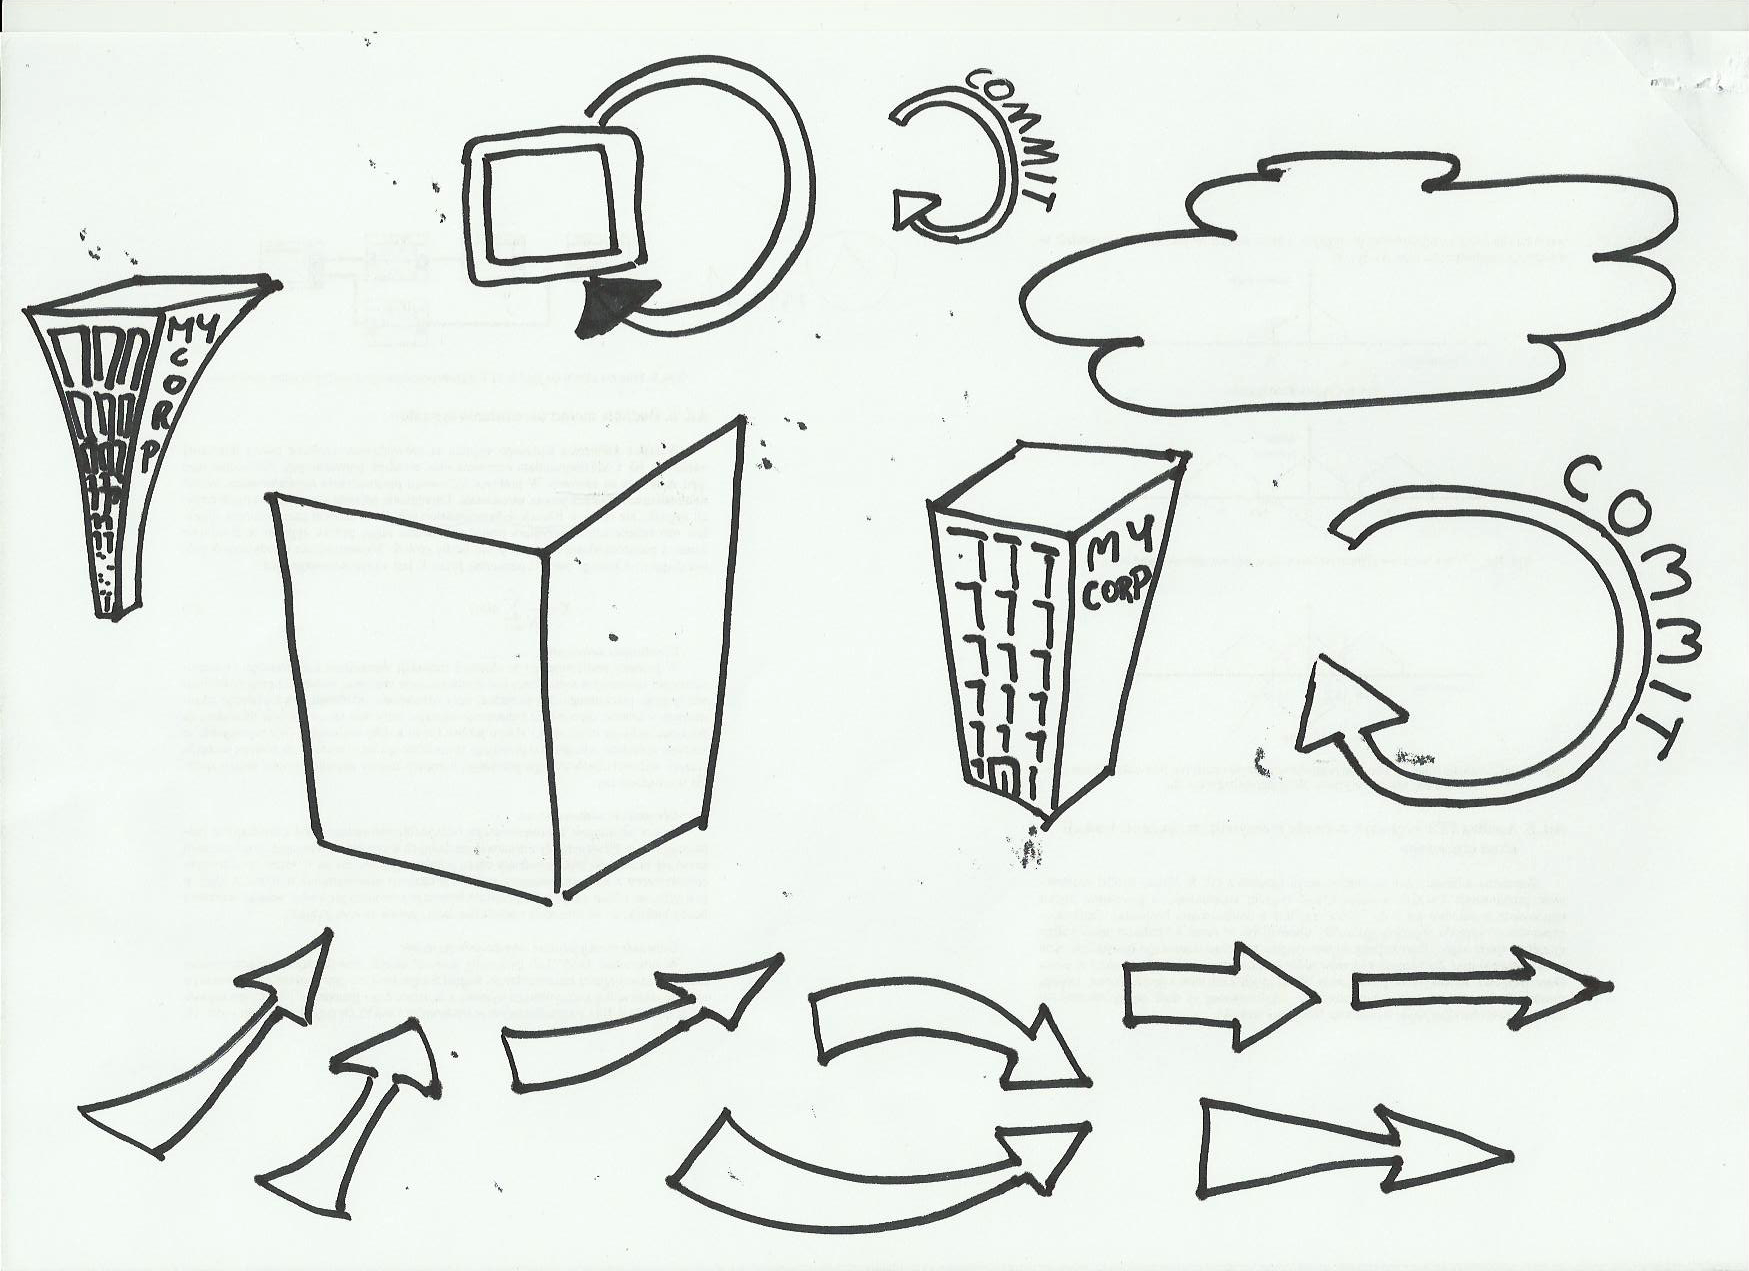 COMMIT
MY
C
O
R
P
MY
CORP
COMMIT